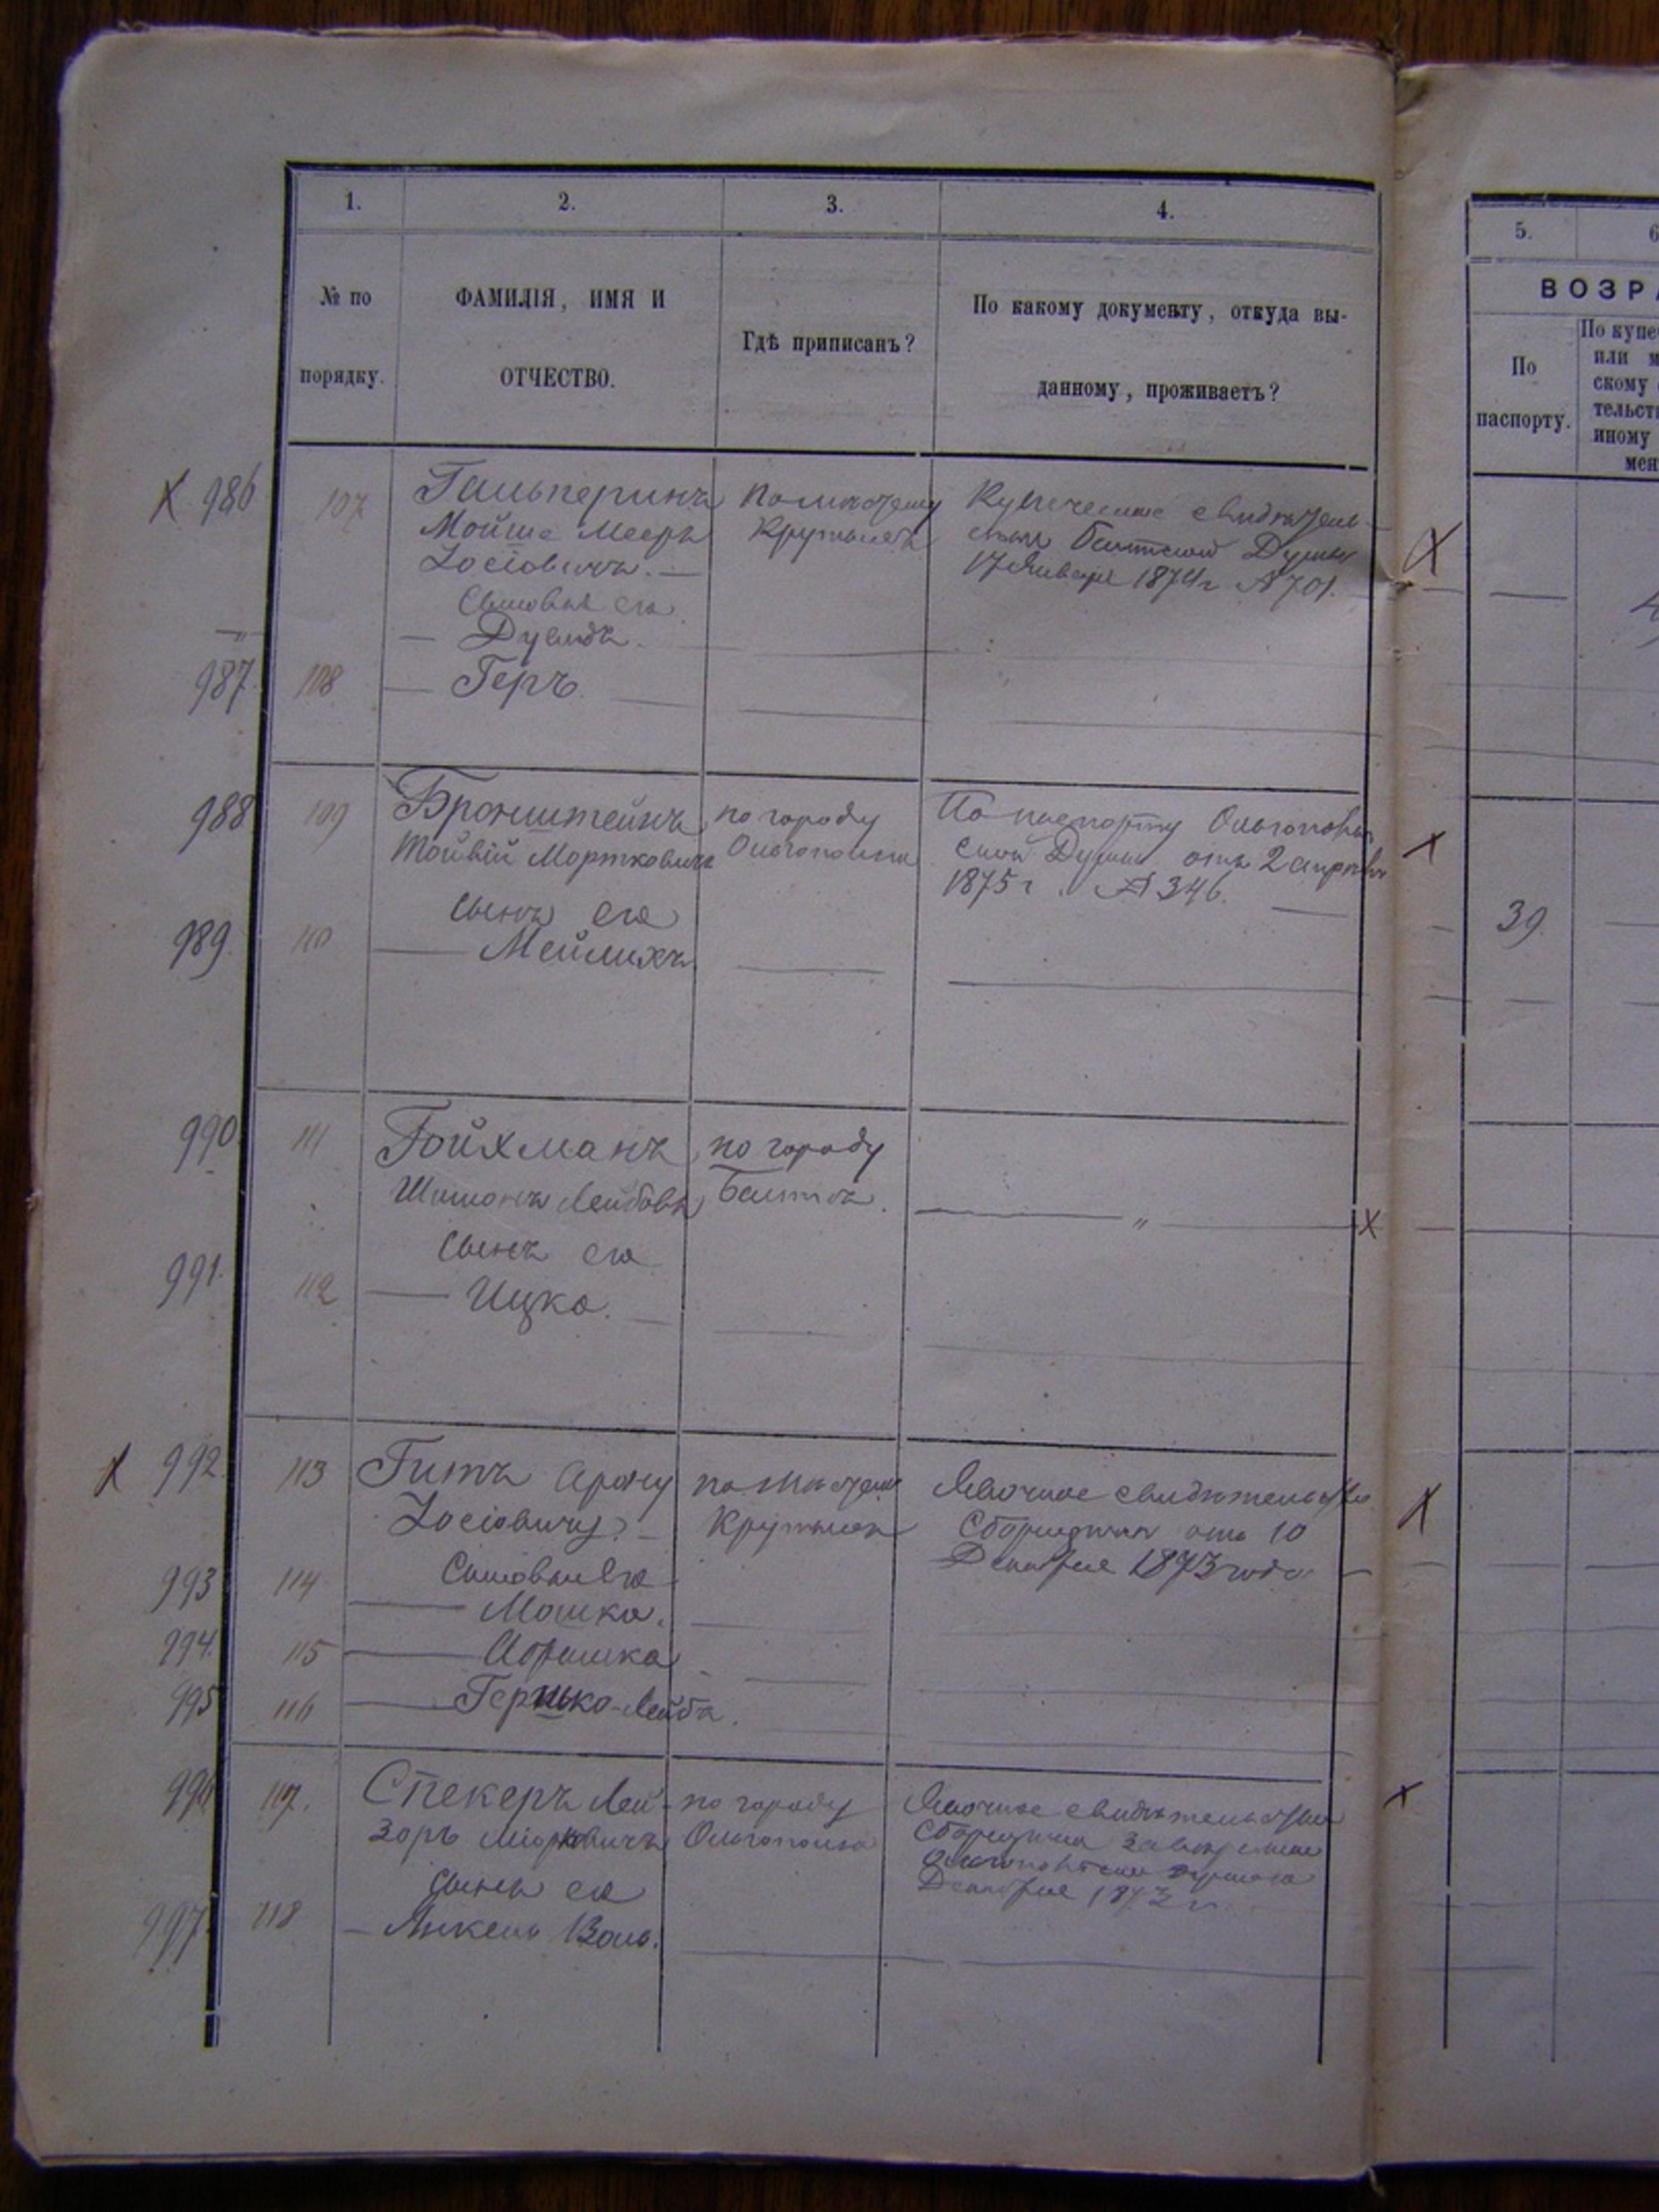 1.
2.
3.
4.
5.
6
№ по порядку.
ФАМИЛІЯ, ИМЯ И
ОТЧЕСТВО.
Гдѣ приписанъ?
По какому документу, откуда вы-
данному, проживаетъ?
ВОЗРА
По
паспорту.
По купе
или м
скому
тельст
иному
мен
986
107
Гальперинъ
Мойше Мееръ
Іосіовичъ. —
Сыновья его
— Дувидъ.
по мѣстечку
Крутымъ
Купеческое свидѣтель-
ство Балтской Думы
17 Января 1874 г № 701.
987.
108
— Геръ.
988
109
Бронштейнъ
Тойвій Мортковичъ
по городу
Ольгополю
По паспорту Ольгополь
ской Думы отъ 2 апрѣля
1875 г. № 346.
39.
Сынъ его
989.
110
— Мейлихъ
990.
111
Гойхманъ
Шимонъ Лейбовъ
по городу
Балтѣ.
— „ —
Сынъ его
991.
112
— Ицко.
992.
113
Гитъ Арону
Іосіовичу?
по мѣстечку
Крутымъ
Явочное свидѣтельство
Сборщика отъ 10
Декабря 1873 года
Сыновья его
993
114
— Мошко.
994.
115
— Абрашка
995
116
— Гершко-Лейба.
996
117.
Спекеръ Лей-
зоръ Міорковичъ
по городу
Ольгополю
Явочное свидѣтельство
Сборщика
Декабря 1873 г.
Сынъ его
997.
118
— Янкель Воль.